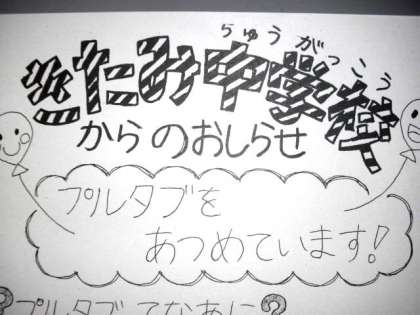 ちゅうがっこう
きたみ中学校
からのおしらせ
プルタブを
あつめています!
?プルタブってなあに?